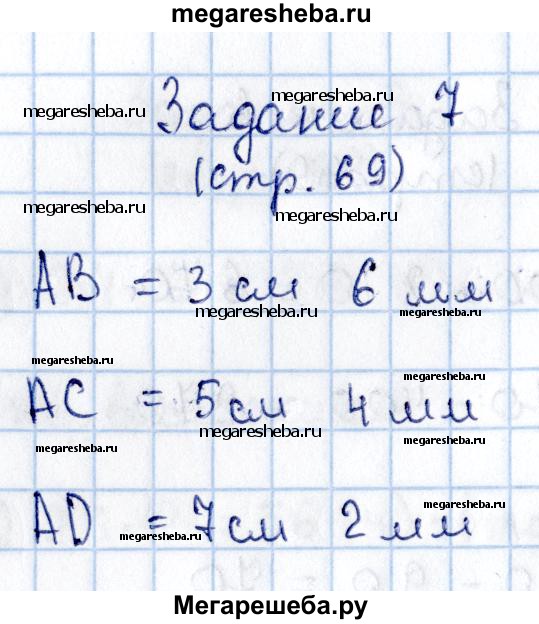 megaresheba.ru
megaresheba.ru
megaresheba.ru
Задание 7
(стр. 69)
megaresheba.ru
megaresheba.ru
AB = 3 см 6 мм
megaresheba.ru
megaresheba.ru
megaresheba.ru
megaresheba.ru
AC = 5 см 4 мм
megaresheba.ru
megaresheba.ru
megaresheba.ru
AD = 7 см 2 мм
megaresheba.ru
megaresheba.ru
Мегарешеба.ру